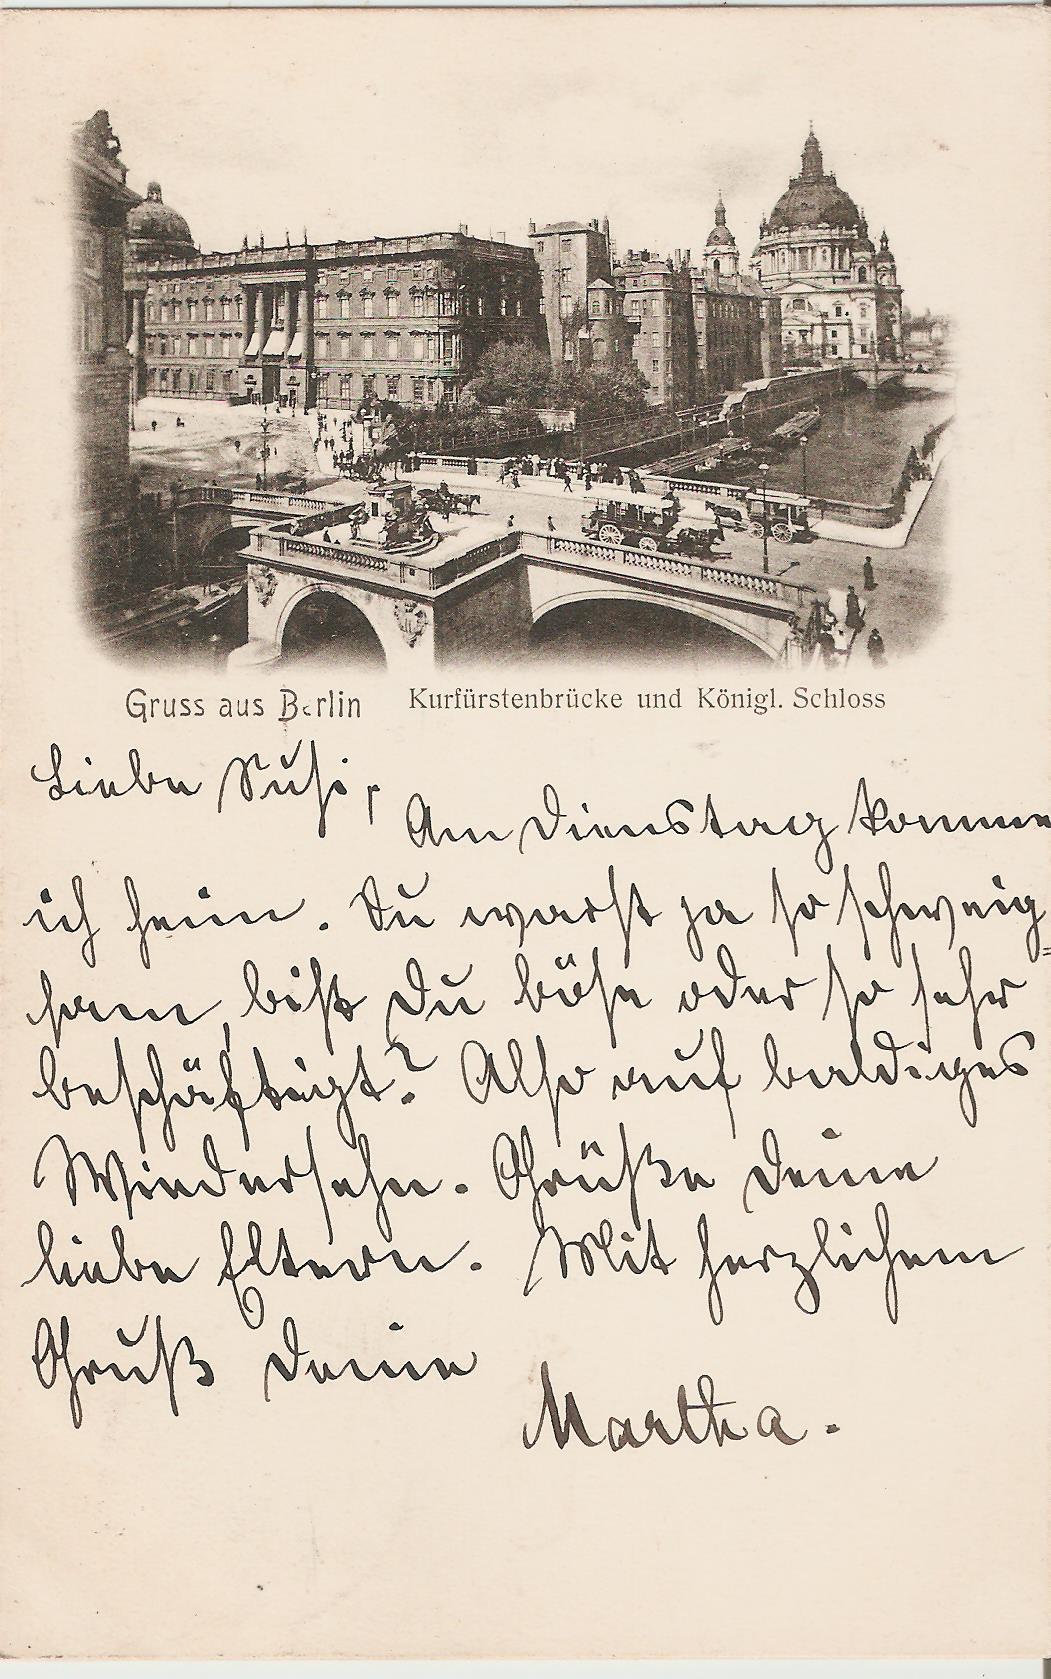 Gruss aus Berlin Kurfürstenbrücke und Königl. Schloss
Liebe Susi,
Am Dienstag komme
ich heim. Du warst ja so schweig=
sam, bist Du böse oder so sehr
beschäftigt? Also auf baldiges
Wiedersehn. Grüße Deine
lieben Eltern. Mit herzlichem
Gruß Deine
Martha.